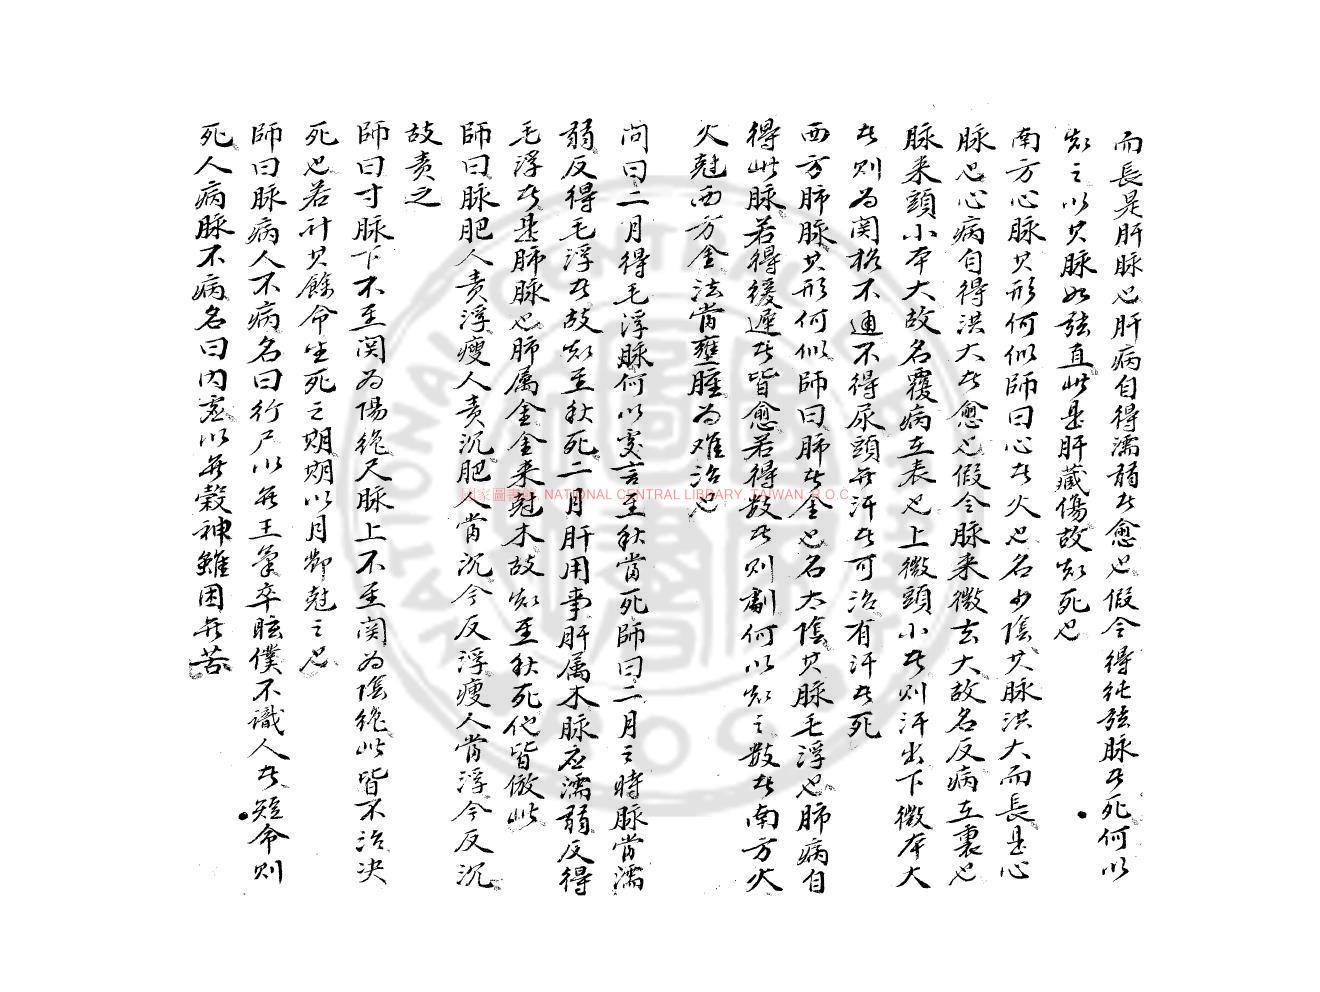 而長是肝脉也肝病自得濡弱者愈也假令得純弦脉者死何以
知之以其脉如弦直此是肝藏傷故知死也
南方心脉其形何似師曰心者火也名少陰其脉洪大而長是心
脉也心病自得洪大者愈也假令脉来微去大故名反病在裏也
脉来頭小本大故名覆病在表也上微頭小者则汗出下微本大
者则为関格不通不得尿頭无汗者可治有汗者死
西方肺脉其形何似師曰肺者金也名太陰其脉毛浮也肺病自
得此脉若得緩遲者皆愈若得数者则劇何以知之数者南方火
火尅西方金法當壅腫为难治也
问曰二月得毛浮脉何以处言至秋當死師曰二月之時脉當濡
弱反得毛浮者故知至秋死二月肝用事肝属木脉应濡弱反得
毛浮者是肺脉也肺属金金来尅木故知至秋死他皆倣此
師曰脉肥人责浮瘦人责沉肥人當沉今反浮瘦人當浮今反沉
故责之
師曰寸脉下不至関为陽絶尺脉上不至関为陰絶此皆不治决
死也若计其餘命生死之期期以月节尅之也
師曰脉病人不病名曰行尸以无王氣卒眩僕不識人者短命则
死人病脉不病名曰内虚以无穀神雖困无苦
国家圖書館 NATIONAL CENTRAL LIBRARY, TAIWAN, R.O.C